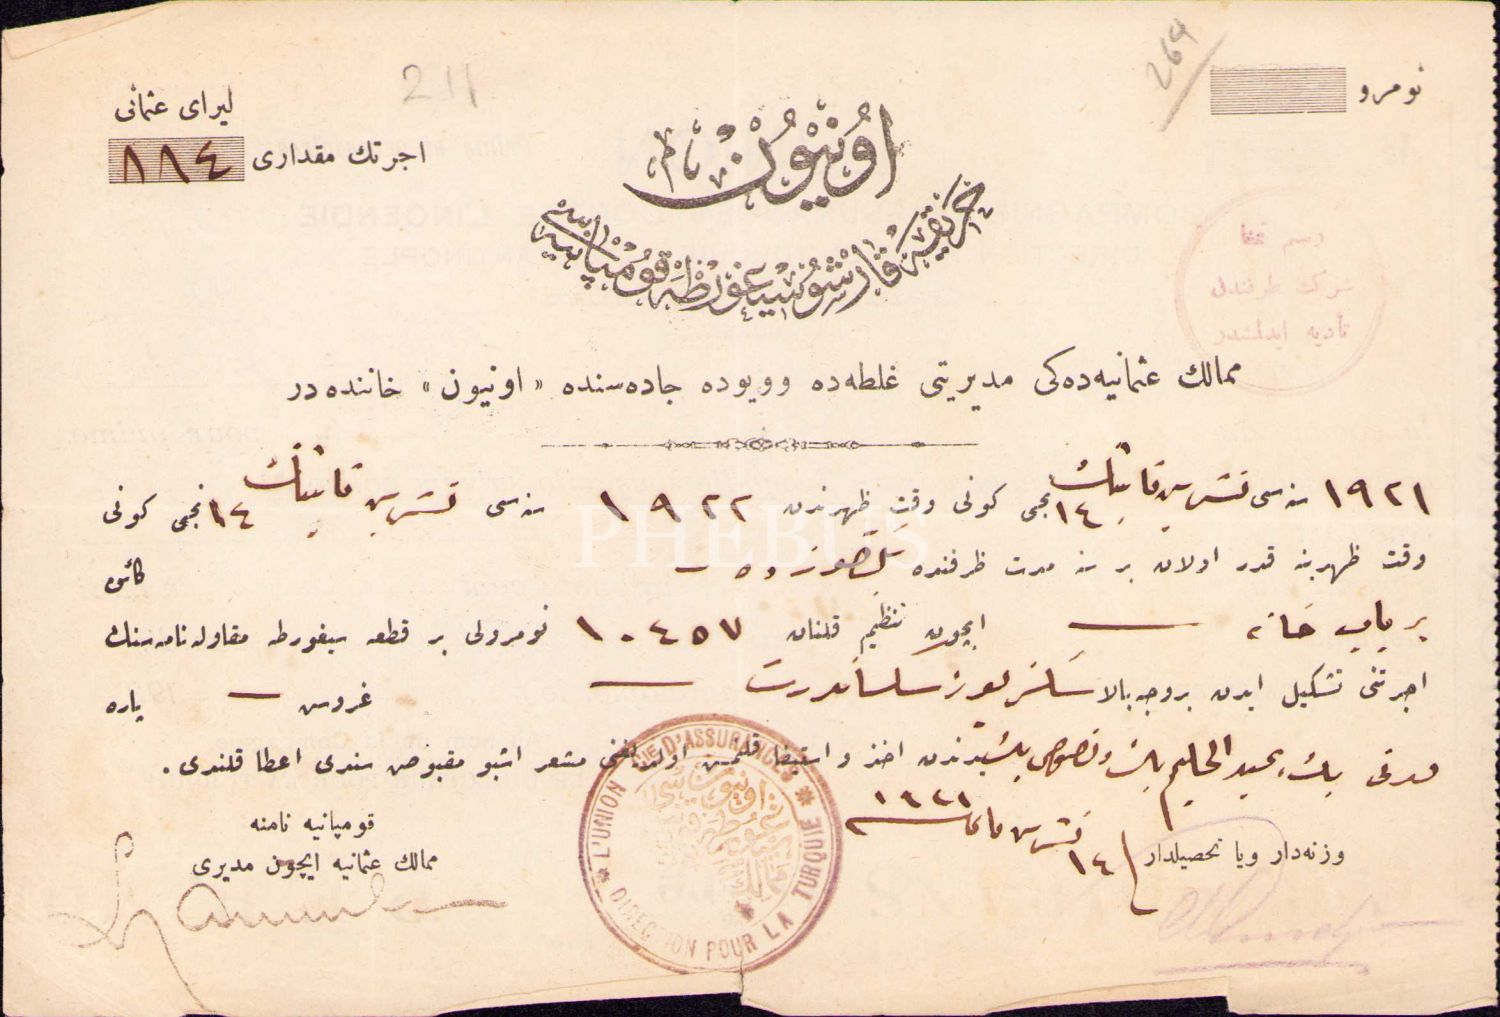 نومرو
264
211
ليراى عثمانى
اجرتك مقدارى ٨٨٤
اونيون نام
حريقه قارشو سيغورطه قومپانيه سى
رسم تمغا
شركت طرفندن
تأديه ايدلمشدر
ممالك عثمانيه ده كى مديريتى غلطه ده وويوده جاده سنده « اونيون » خاننده در
١٩٢١ سنه سى تشرين ثانينك ١٤ نجى كونى وقت ظهرندن ١٩٢٢ سنه سى تشرين ثانينك ١٤ نجى كونى
وقت ظهرينه قدر اولان بر سنه مدت ظرفنده ده كائن
بر ياپ خانه ايچون تنظيم قلنان ١٠٤٥٧ نومرولى بر قطعه سيغورطه مقاوله نامه سنك
اجرتنى تشكيل ايدن بروجه بالا غروش پاره
بك عبد الحليم بك اخذ و استيفا قلنمش اولديغنى مشعر اشبو مقبوض سندى اعطا قلندى .
١٤ تشرين ثانى ١٩٢١
وزنه دار ويا تحصيلدار
قومپانيه نامنه
ممالك عثمانيه ايچون مديرى
L'UNION D'ASSURANCES * DIRECTION POUR LA TURQUIE *
PHEBUS